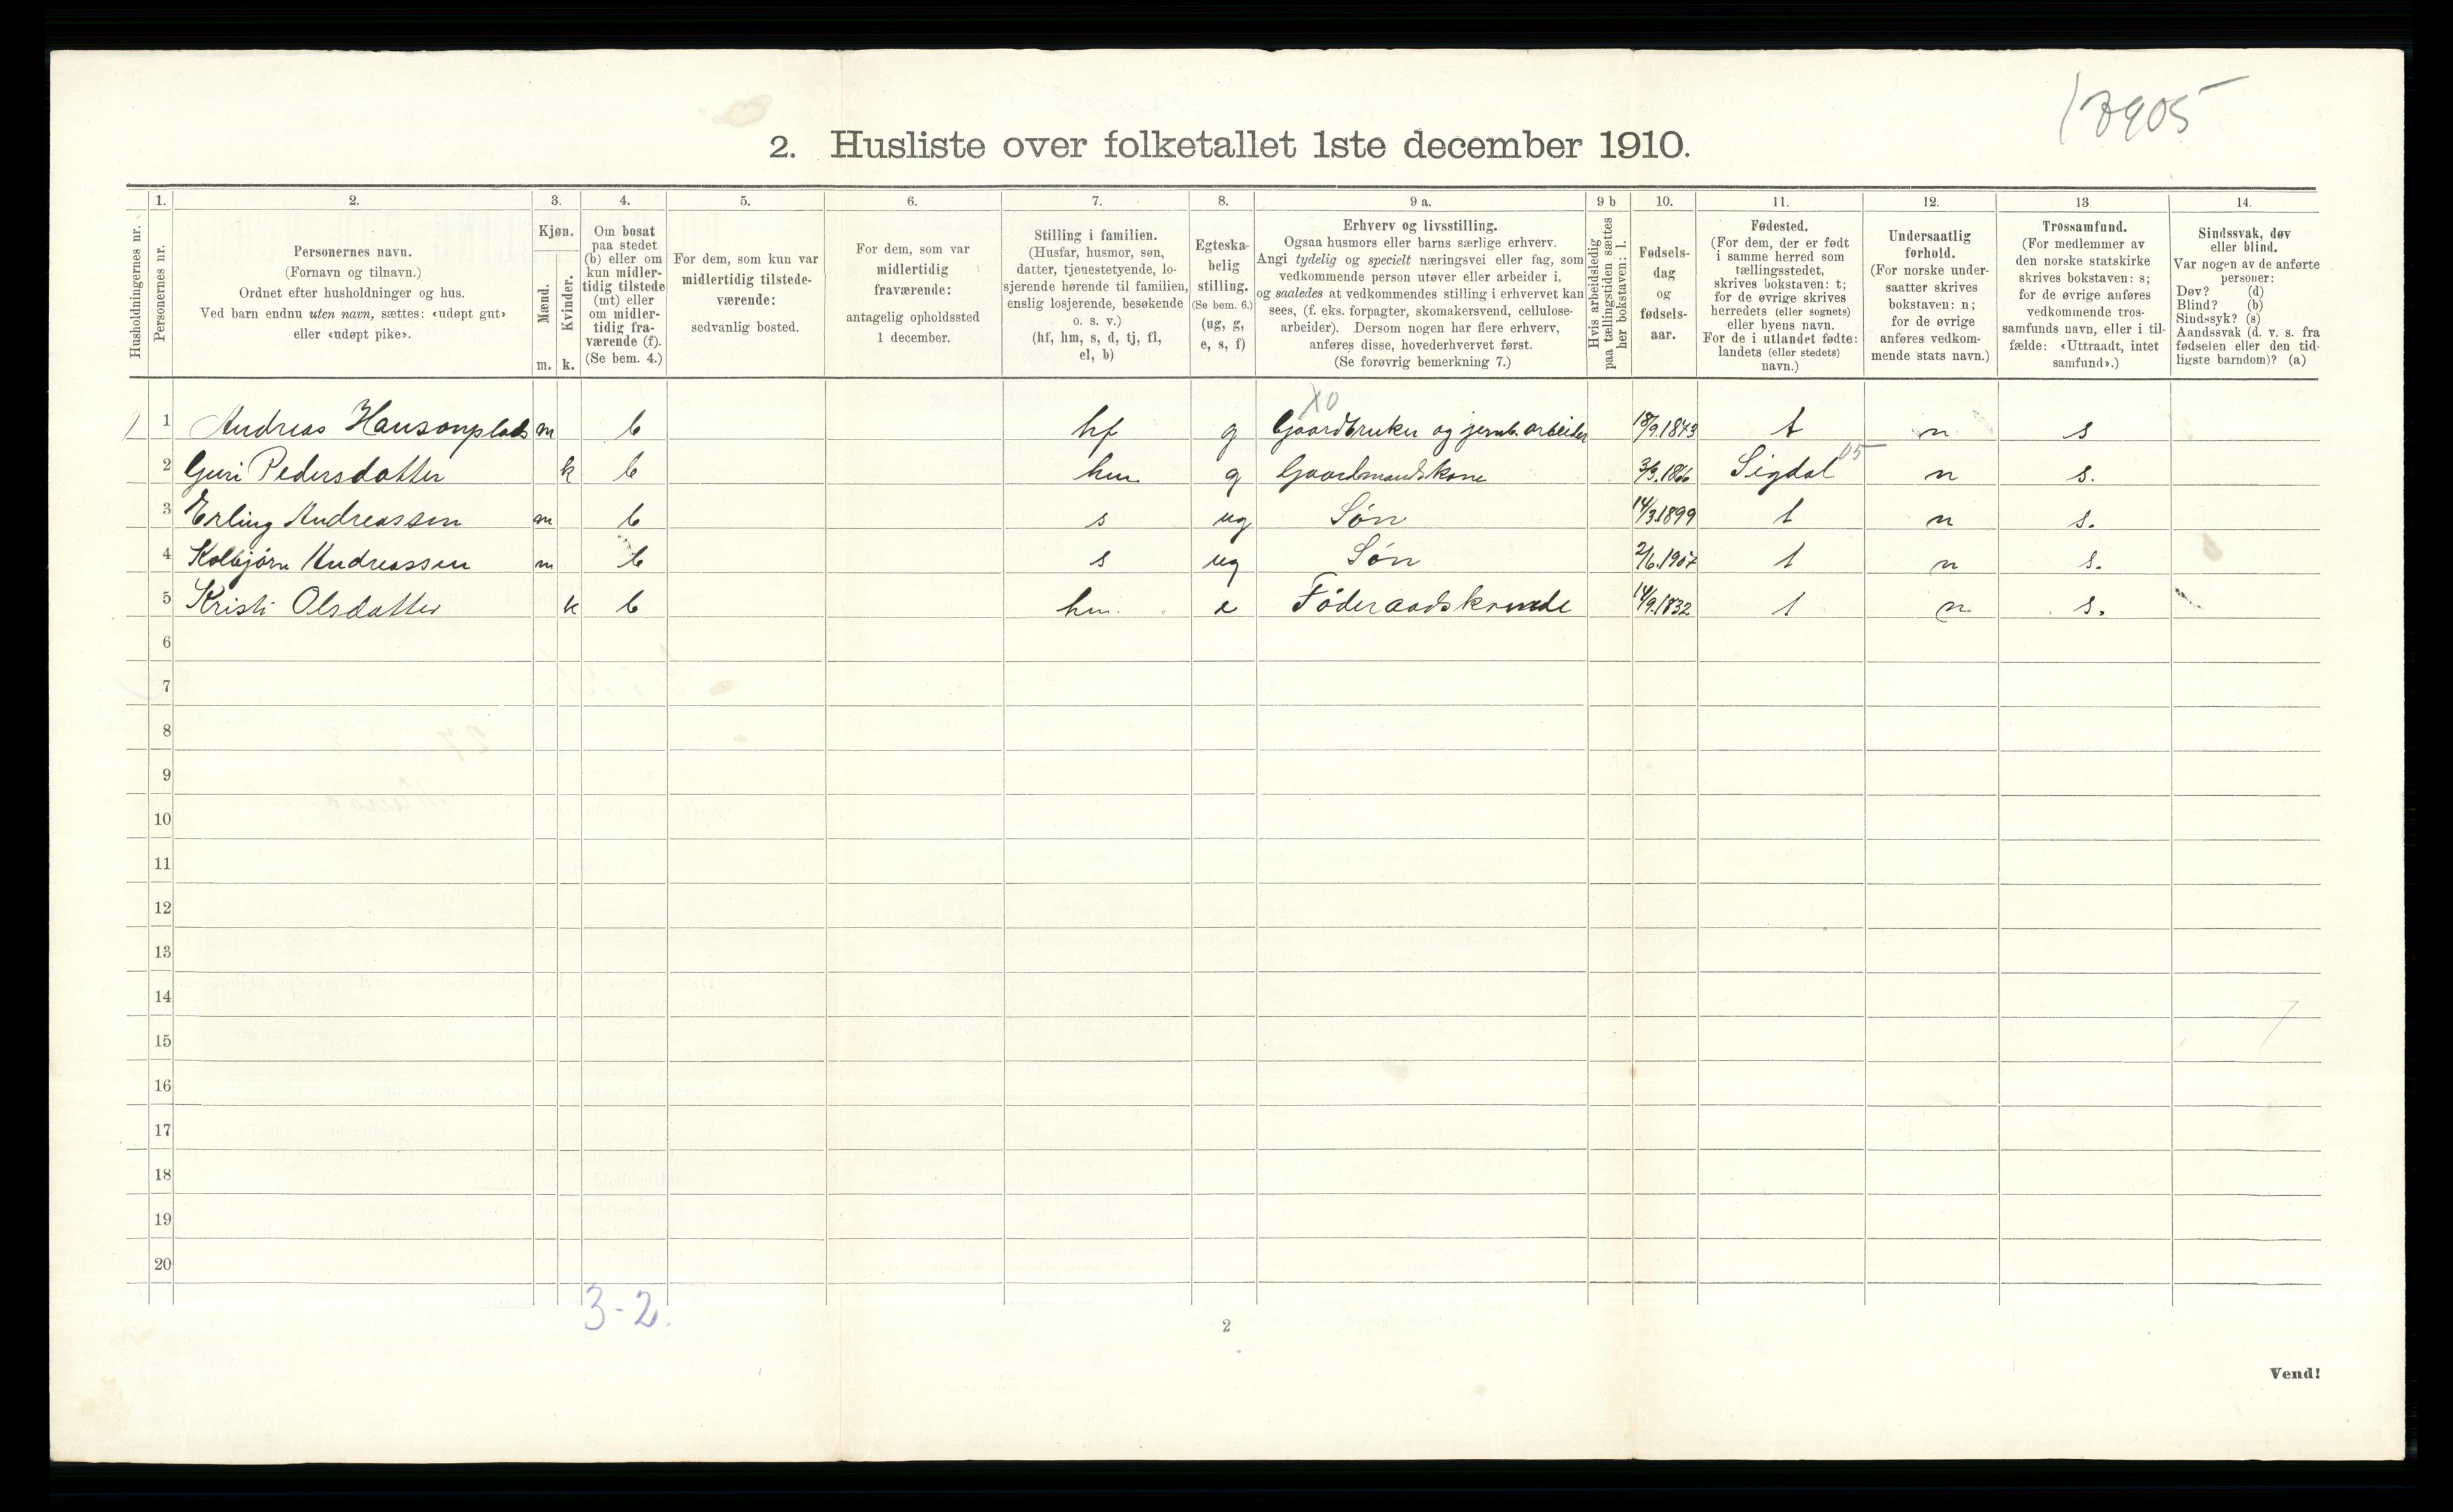 2. Husliste over folketallet 1ste december 1910.
1. 2. 3. 4. 5. 6. 7. 8. 9 a. 9 b 10. 11. 12. 13. 14.
Husholdningernes nr.
Personernes nr.
Personernes navn.
(Fornavn og tilnavn.)
Ordnet efter husholdninger og hus.
Ved barn endnu uten navn, sættes: «udøpt gut»
eller «udøpt pike».
Kjøn.
Mænd.
Kvinder.
m. k.
Om bosat
paa stedet
(b) eller om
kun midler-
tidig tilstede
(mt) eller
om midler-
tidig fra-
værende (f).
(Se bem. 4.)
For dem, som kun var
midlertidig tilstede-
værende:
sedvanlig bosted.
For dem, som var
midlertidig
fraværende:
antagelig opholdssted
1 december.
Stilling i familien.
(Husfar, husmor, søn,
datter, tjenestetyende, lo-
sjerende hørende til familien,
enslig losjerende, besøkende
o. s. v.)
(hf, hm, s, d, tj, fl,
el, b)
Egteska-
belig
stilling.
(Se bem. 6.)
(ug, g,
e, s, f)
Erhverv og livsstilling.
Ogsaa husmors eller barns særlige erhverv.
Angi tydelig og specielt næringsvei eller fag, som
vedkommende person utøver eller arbeider i,
og saaledes at vedkommendes stilling i erhvervet kan
sees, (f. eks. forpagter, skomakersvend, cellulose-
arbeider). Dersom nogen har flere erhverv,
anføres disse, hovederhvervet først.
(Se forøvrig bemerkning 7.)
Hvis arbeidsledig
paa tællingstiden sættes
her bokstaven: l.
Fødsels-
dag
og
fødsels-
aar.
Fødested.
(For dem, der er født
i samme herred som
tællingsstedet,
skrives bokstaven: t;
for de øvrige skrives
herredets (eller sognets)
eller byens navn.
For de i utlandet fødte:
landets (eller stedets)
navn.)
Undersaatlig
forhold.
(For norske under-
saatter skrives
bokstaven: n;
for de øvrige
anføres vedkom-
mende stats navn.)
Trossamfund.
(For medlemmer av
den norske statskirke
skrives bokstaven: s;
for de øvrige anføres
vedkommende tros-
samfunds navn, eller i til-
fælde: «Uttraadt, intet
samfund».)
Sindssvak, døv
eller blind.
Var nogen av de anførte
personer:
Døv? (d)
Blind? (b)
Sindssyk? (s)
Aandssvak (d. v. s. fra
fødselen eller den tid-
ligste barndom)? (a)
X0
1 Andreas Hansonplads m b hf g Gaardbruker og jernb. arbeider 18/9.1843 t n s
05
2 Guri Pedersdatter k b hm g Gaardmandskone 3/3.1866 Sigdal n s.
3 Erling Andreassen m b s ug Søn 14/3.1899 t n s.
4 Kolbjørn Andreassen m b s ug Søn 2/6.1907 t n s.
5 Kristi Olsdatter k b hm. e Føderaadskvinde 14/9.1832 t n s.
6
7
8
9
10
11
12
13
14
15
16
17
18
19
20
3-2.
2
Vend!